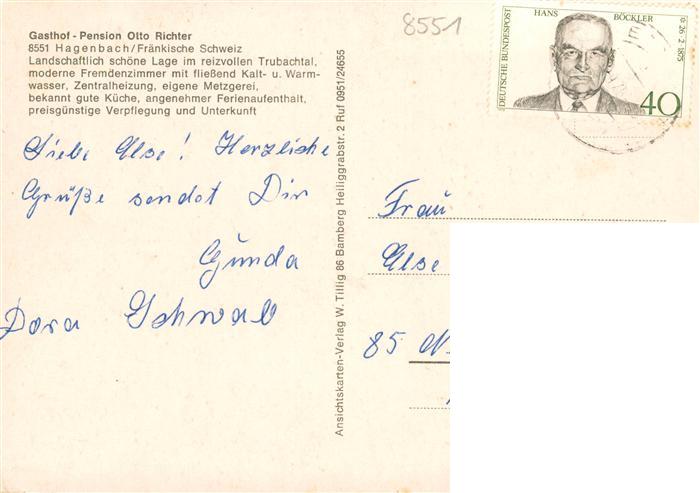 Gasthof - Pension Otto Richter
8551 Hagenbach/Fränkische Schweiz
Landschaftlich schöne Lage im reizvollen Trubachtal,
moderne Fremdenzimmer mit fließend Kalt- u. Warm-
wasser, Zentralheizung, eigene Metzgerei,
bekannt gute Küche, angenehmer Ferienaufenthalt,
preisgünstige Verpflegung und Unterkunft
Liebe Else! Herzliche
Grüße sendet Dir
Gunda
Dora Schwab
Ansichtskarten-Verlag W. Tillig 86 Bamberg Heiliggrabstr. 2 Ruf 0951/24655
8551
DEUTSCHE BUNDESPOST
HANS BÖCKLER
✩ 26·2·1875
40
Frau
Else
85 N